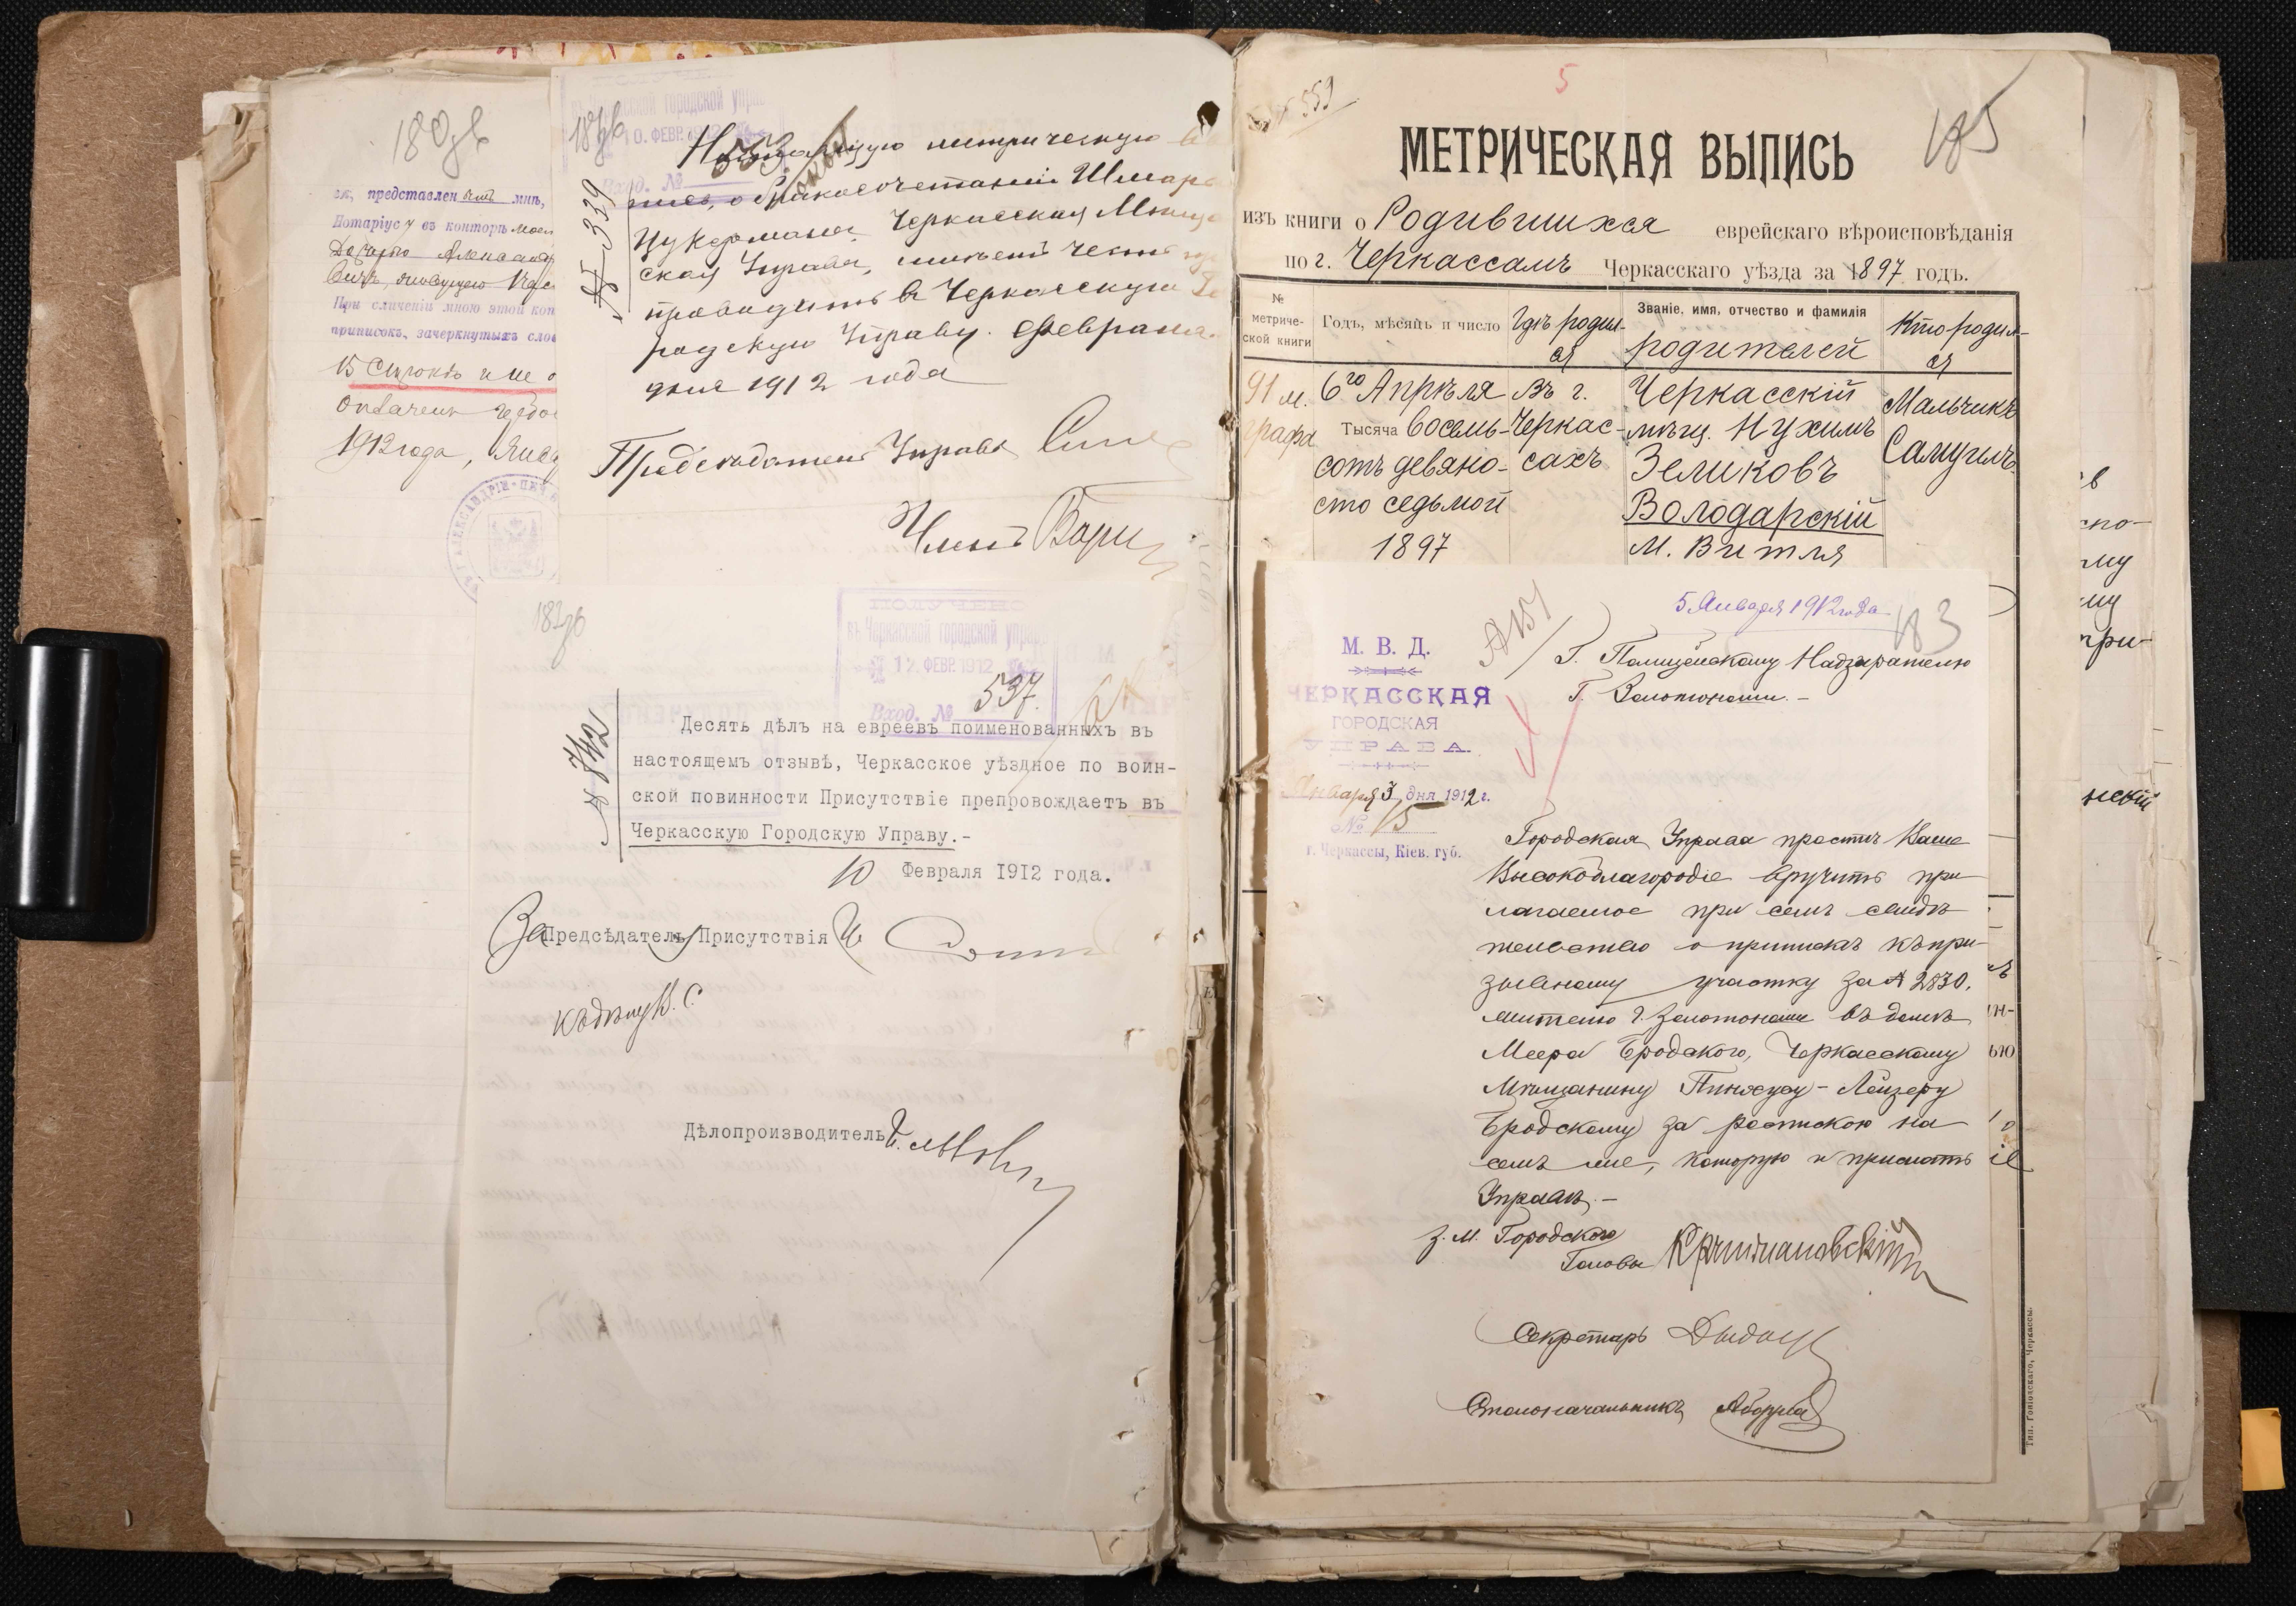 180об
представлен мнѣ,
Нотаріусу въ конторѣ моей
При сличеніи мною этой коп
приписокъ, зачеркнутыхъ слов
15 Строкъ и не о
1912 года,
10. ФЕВР. 1912
553
Вход. №
№ 339
метрическую
о бракосочетаніи Шмар
Цукермана, Черкасская Мѣщ
ская Управа, имѣетъ честь
препроводить въ Черкасскую Го
родскую Управу. Февраля
дня 1912 года
Предсѣдатель Управы
Членъ
182об
ПОЛУЧЕНО
въ Черкасской городской управ
12 ФЕВР. 1912
Вход. № 537.
№ 842
Десять дѣлъ на евреевъ поименованныхъ въ
настоящемъ отзывѣ, Черкасское уѣздное по воин-
ской повинности Присутствіе препровождаетъ въ
Черкасскую Городскую Управу.-
10 Февраля 1912 года.
За Предсѣдатель Присутствія
Къ дѣлу В. С.
Дѣлопроизводитель
5
559
185
МЕТРИЧЕСКАЯ ВЫПИСЬ
изъ книги о Родившихся еврейскаго вѣроисповѣданія
по г. Черкассамъ Черкасскаго уѣзда за 1897 годъ.
№ метриче-ской книги
Годъ, мѣсяцъ и число
Гдѣ родил-ся
Званіе, имя, отчество и фамилія родителей
Кто родил-ся
91 м. графа
6го Апрѣля Тысяча восемь-сотъ девяно-сто седьмой 1897
Въ г. Черкас-сахъ
Черкасскій мѣщ. Нухимъ Зеликовъ Володарскій М. Витля
Мальчикъ Самуилъ.
5 Января 1912 года
183
М. В. Д.
ЧЕРКАССКАЯ
ГОРОДСКАЯ
УПРАВА.
Января 3 дня 1912 г.
№ 15
г. Черкассы, Кіев. губ.
Г. Полицейскому Надзирателю
Г. Золотоноши.-
Городская Управа проситъ Ваше
Высокоблагородіе вручить при
лагаемое при семъ свидѣ
тельство о припискѣ къ при-
зывному участку за № 2830,
жителю г. Золотоноши въ домѣ
Меера Бродскаго, Черкасскому
Мѣщанину Пинхусу-Лейзеру
Бродскому за роспискою на
семъ же, которую и прислать
Управѣ.-
з. м. Городского
Головы Крыжановскій
Секретарь
Столоначальникъ
Тип. Голіовскаго, Черкассы.